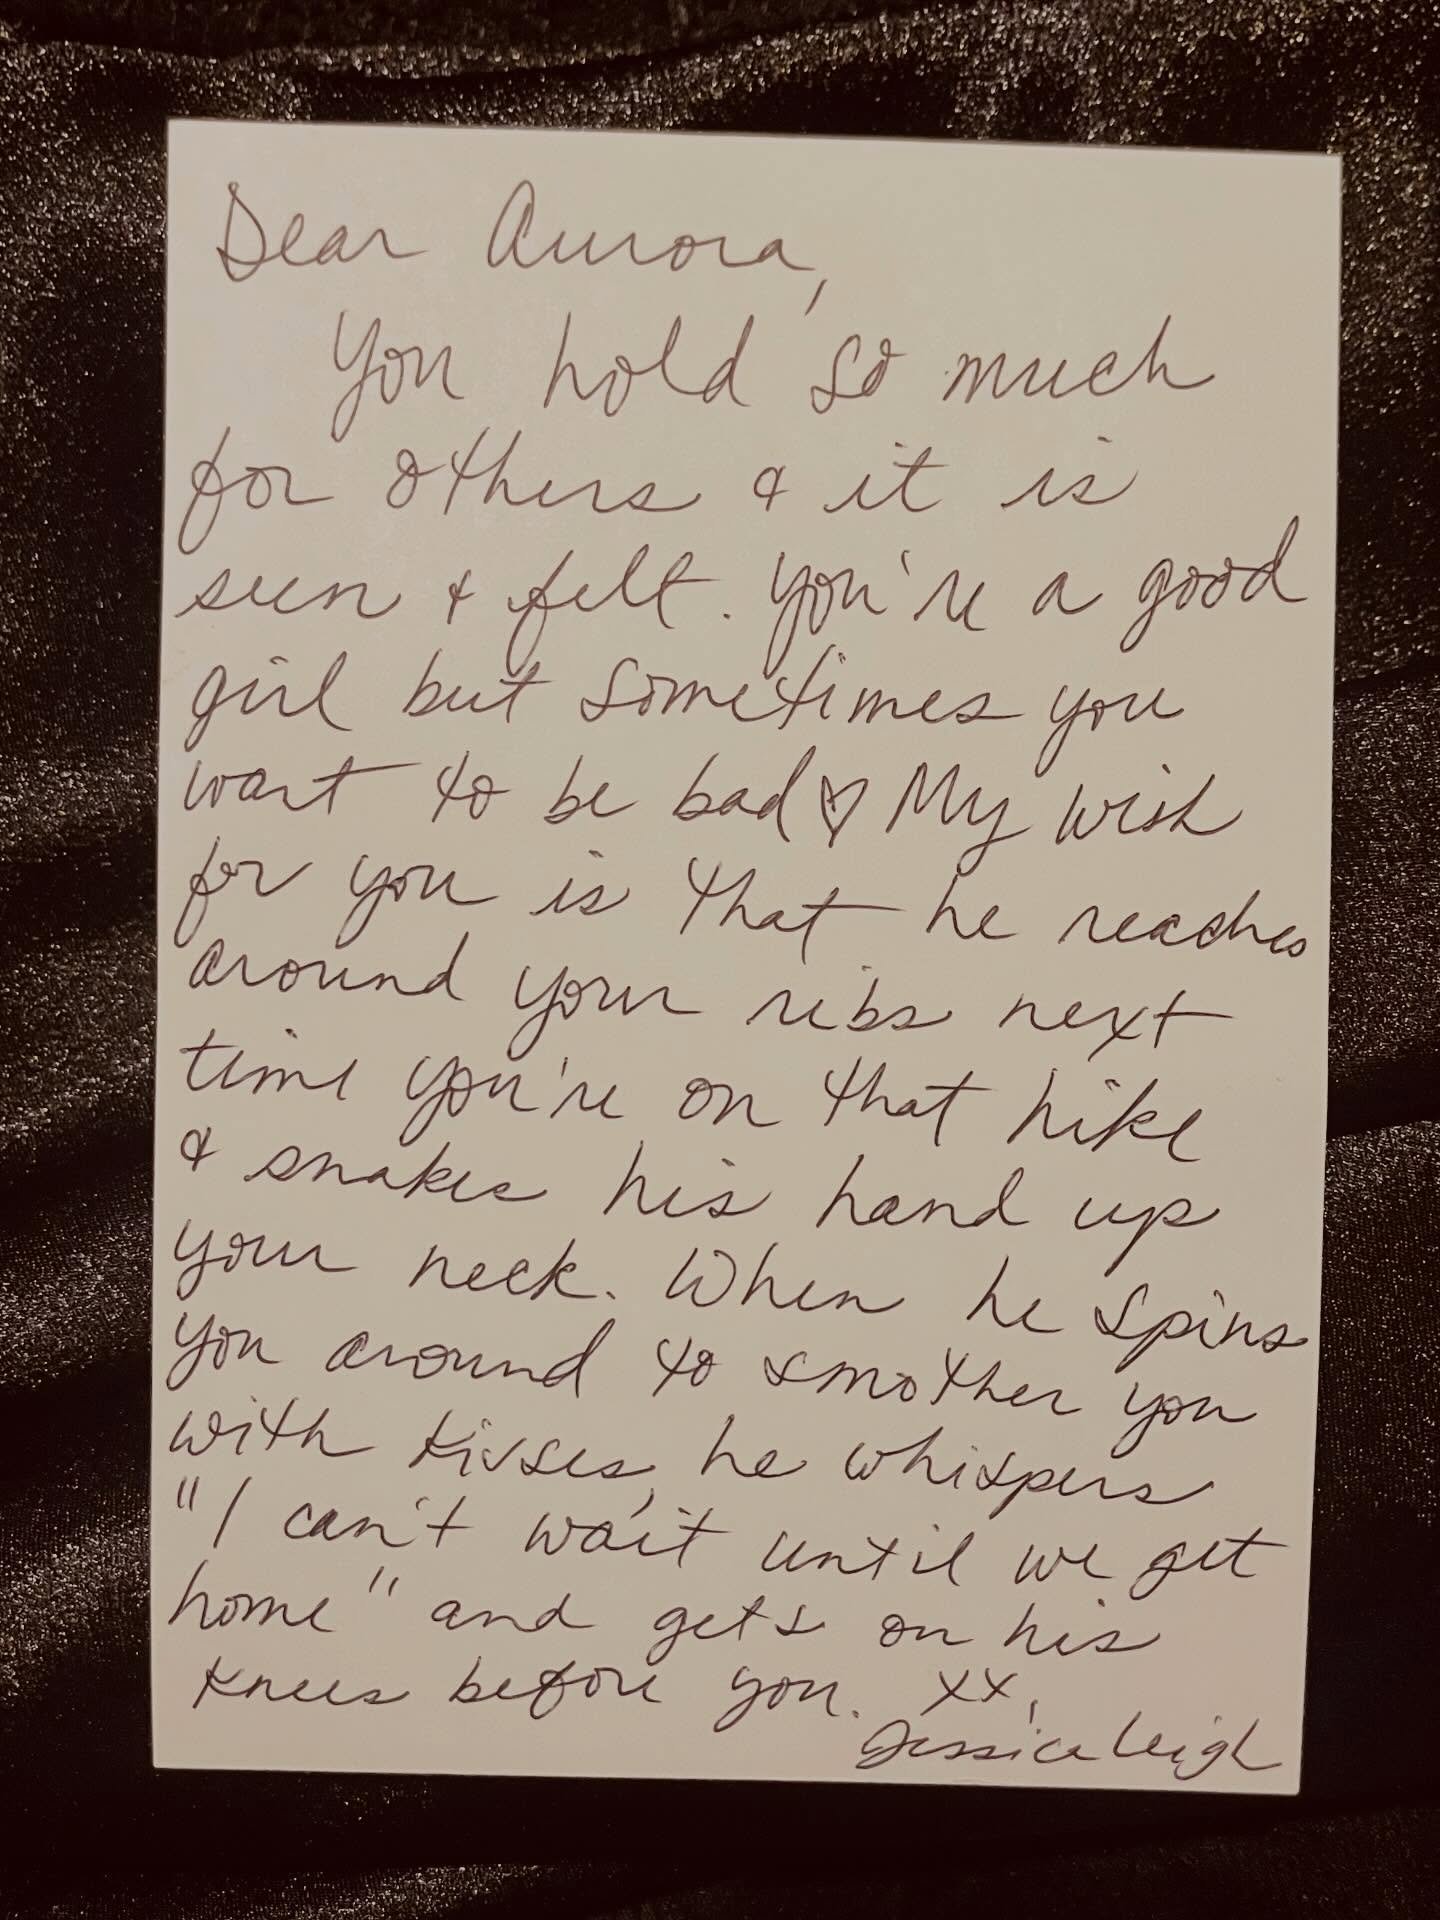 Dear Aurora,
You hold so much
for others & it is
seen & felt. You're a good
girl but sometimes you
want to be bad ♡ My wish
for you is that he reaches
around your ribs next
time you're on that hike
& snakes his hand up
your neck. When he spins
you around to smother you
with kisses, he whispers
"I can't wait until we get
home" and gets on his
knees before you. xx,
Jessica Leigh